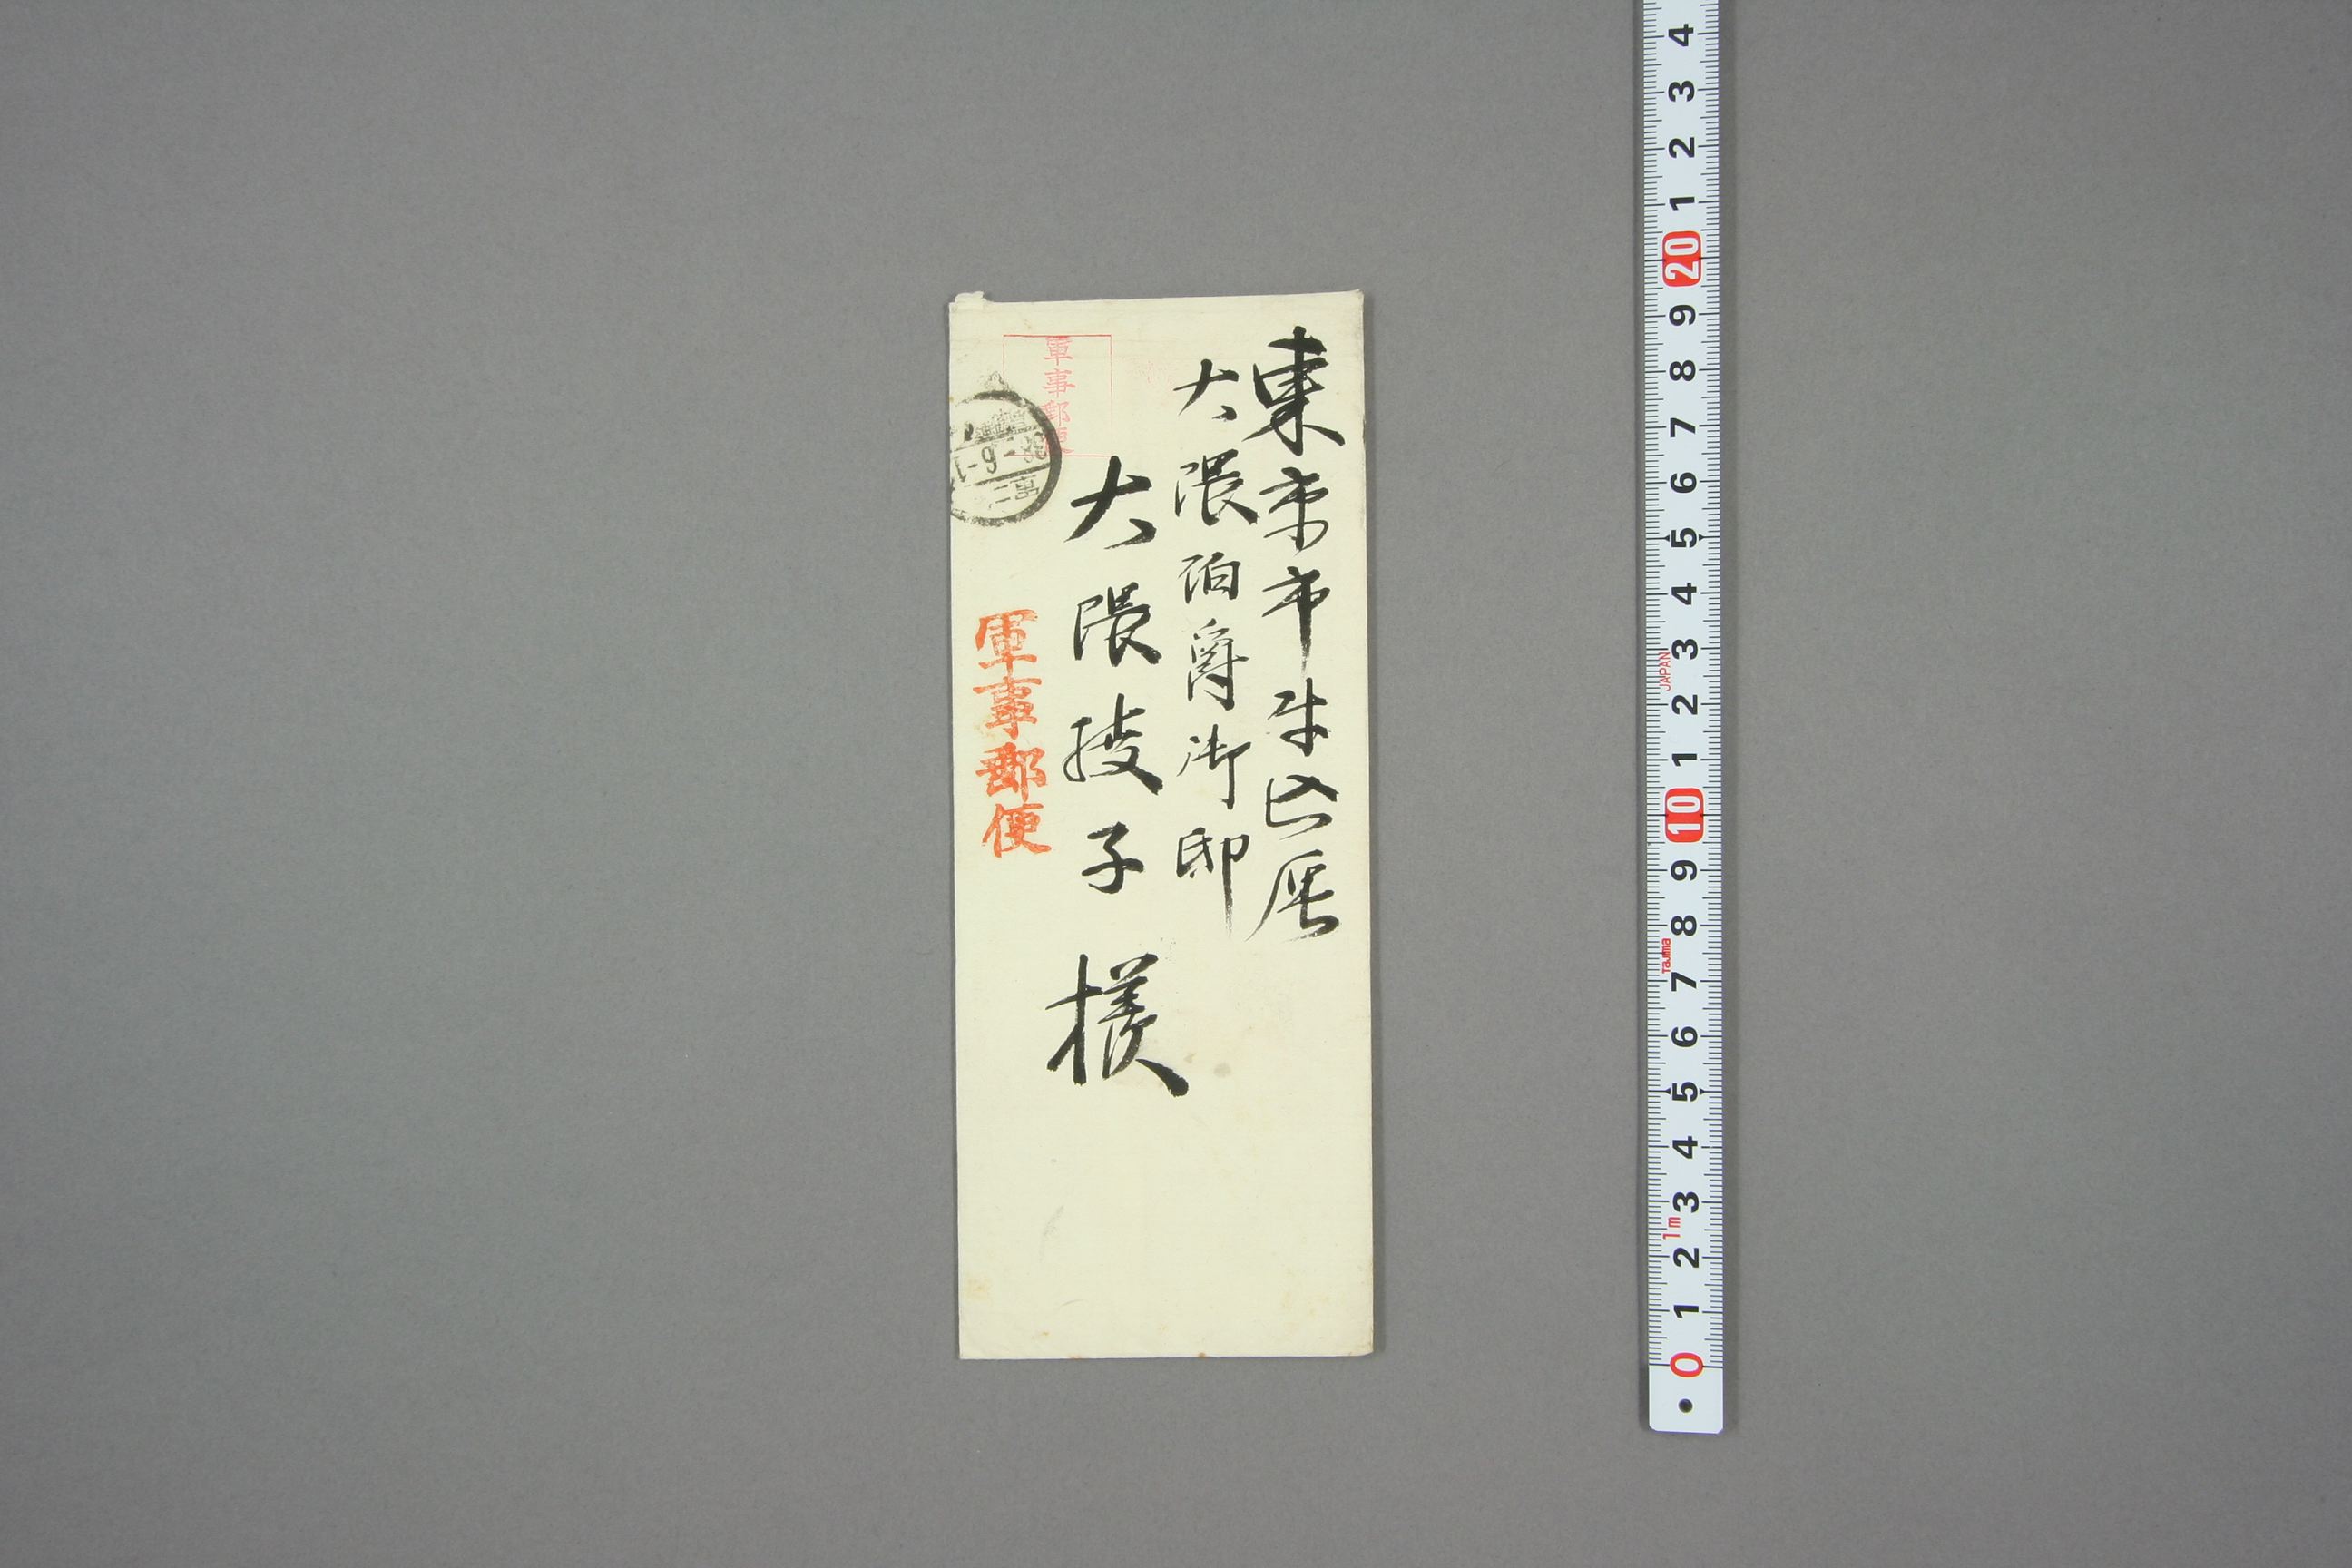 東京市牛込區
大隈伯爵御邸
大隈綾子様
軍事郵便
軍事郵便
38-6-1
4
3
2
1
20
9
8
7
6
5
4
3
JAPAN
2
1
10
9
8
Tajima
7
6
5
4
3
1m
2
1
0